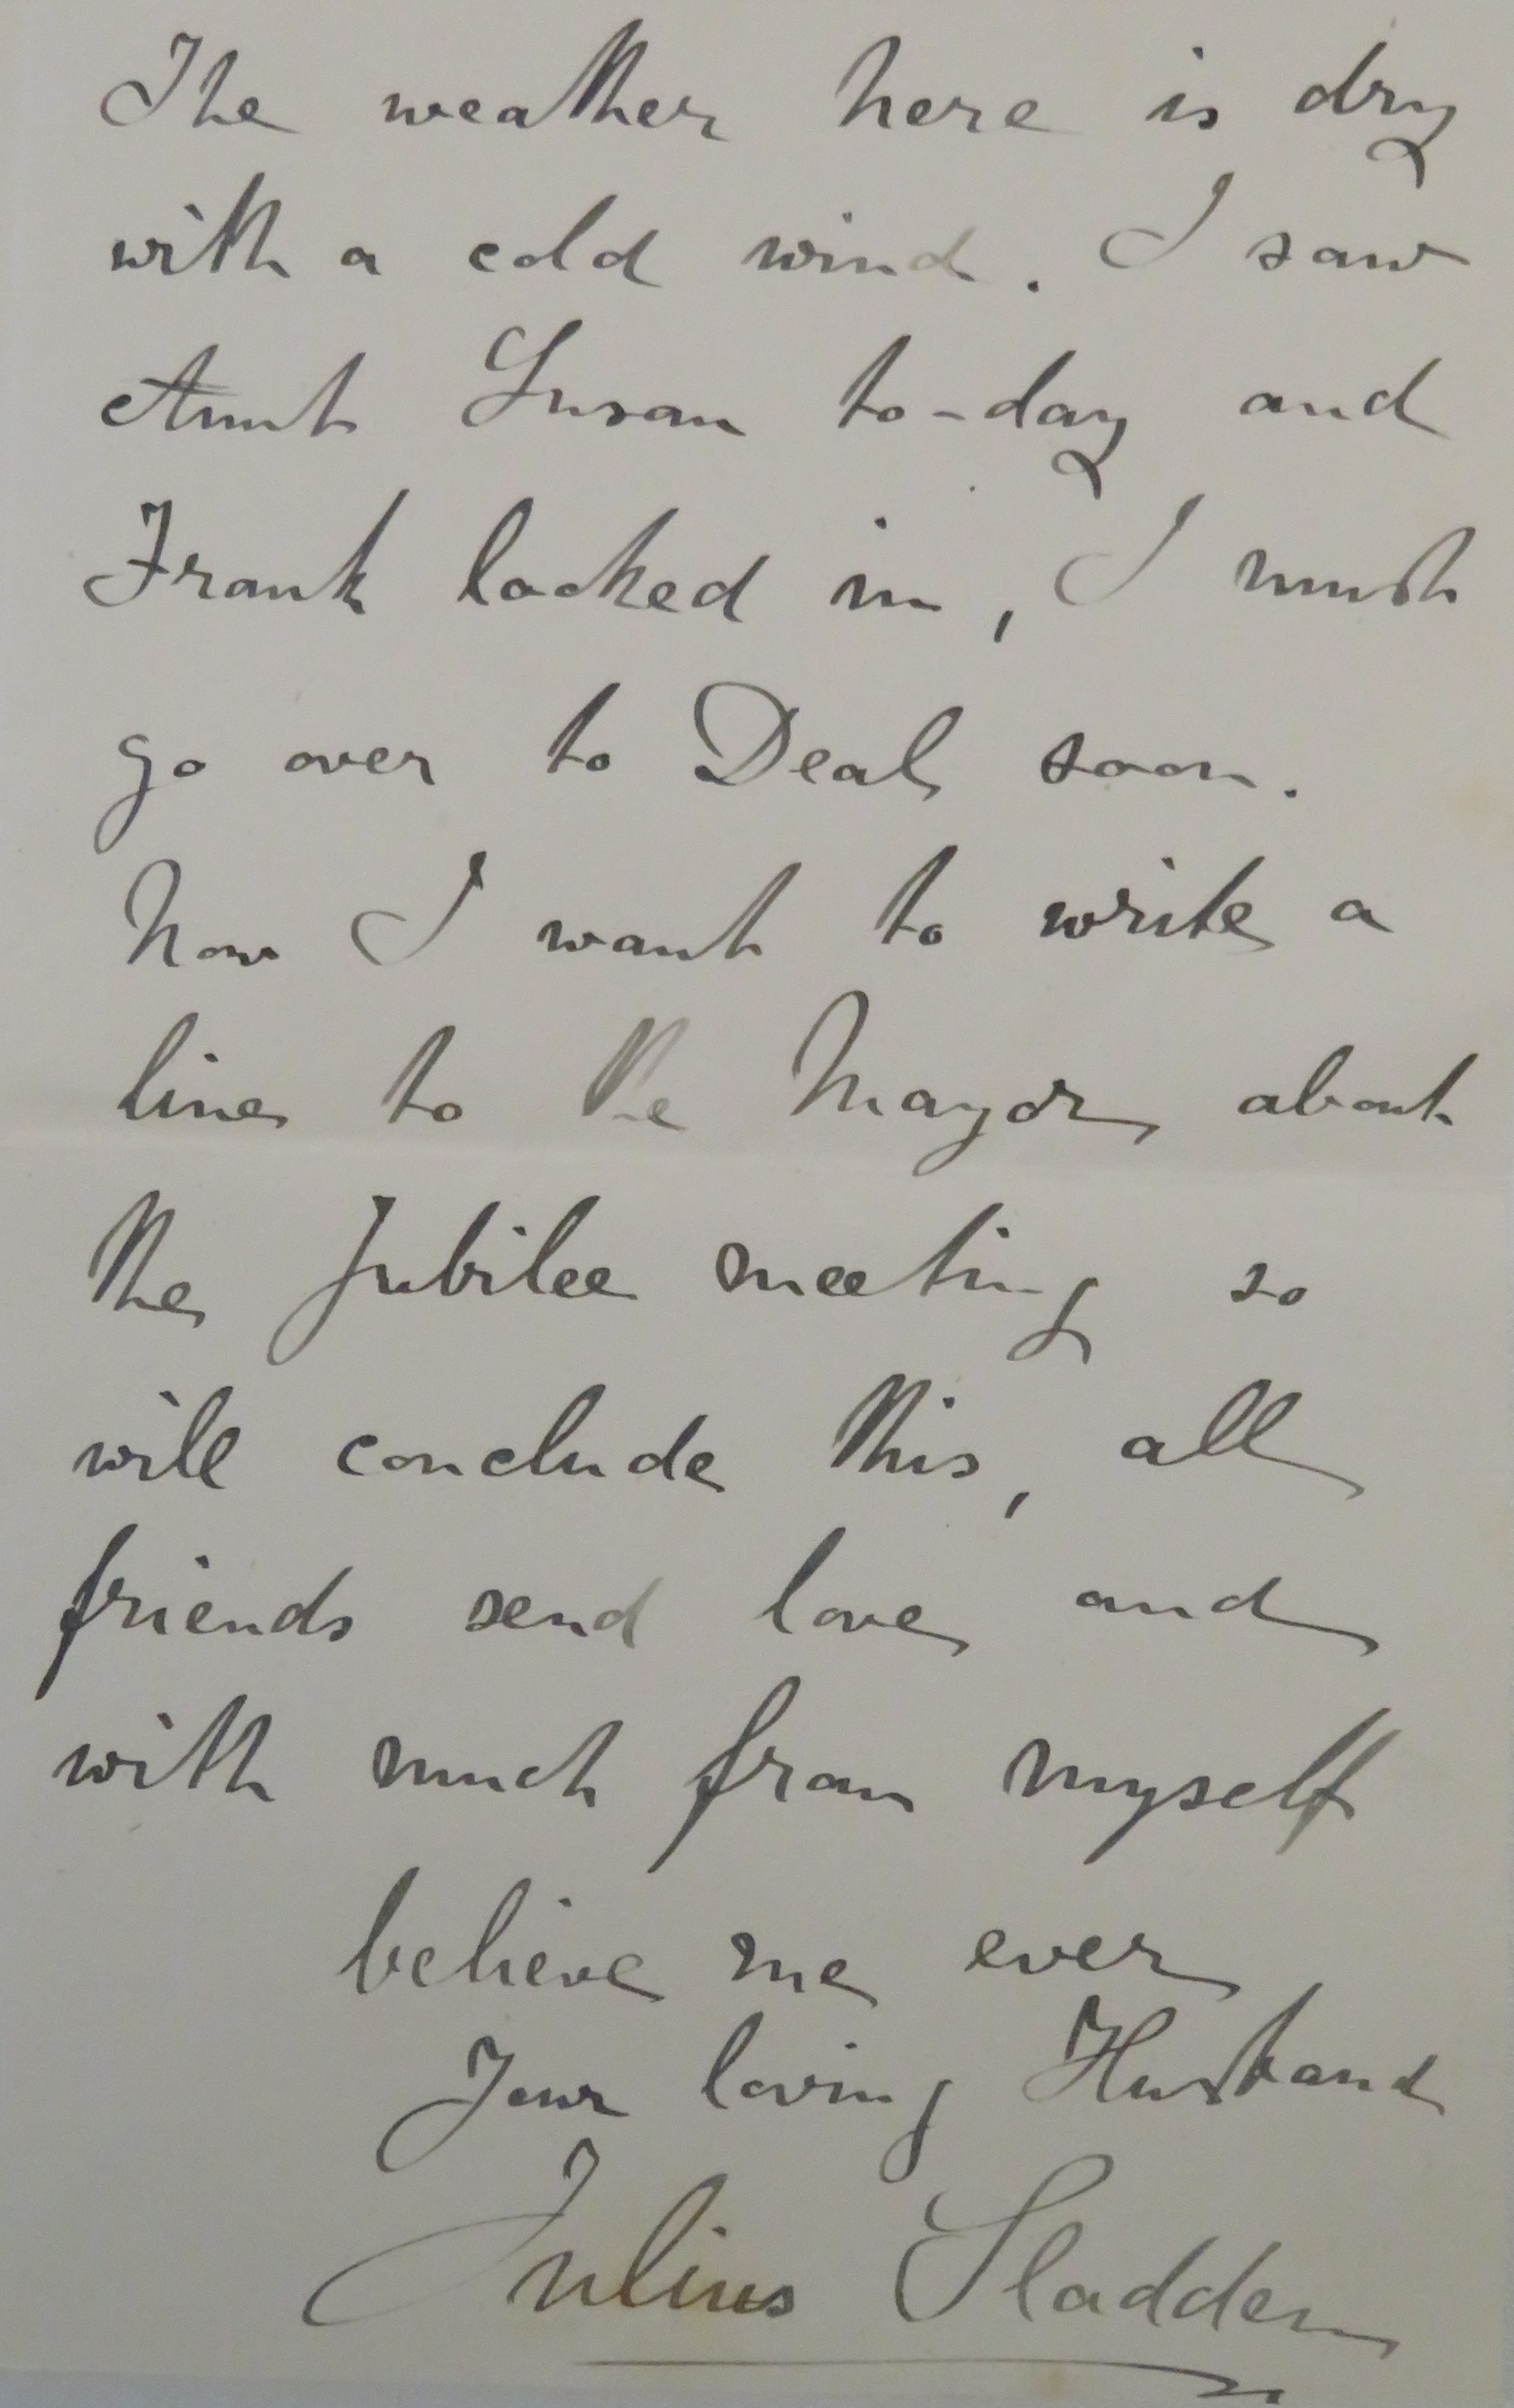 The weather here is dry
with a cold wind. I saw
Aunt Susan to-day and
Frank looked in, I must
go over to Deal soon.
Now I want to write a
line to the Mayor about
the Jubilee meeting so
will conclude this, all
friends send love and
with much from myself
believe me ever
Your loving Husband
Julius Sladden